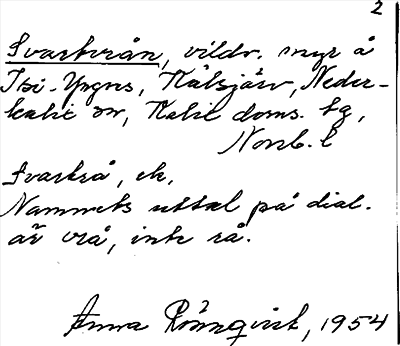 2
Svartvrån, vildv. myr å
Tsi-Yngves, Kälsjärv, Neder-
kalix sn, Kalix doms. tg,
Norrb. l
Svartrå, ek,
Namnets uttal på dial.
är vrå, inte rå.
Anna Rönnqvist, 1954